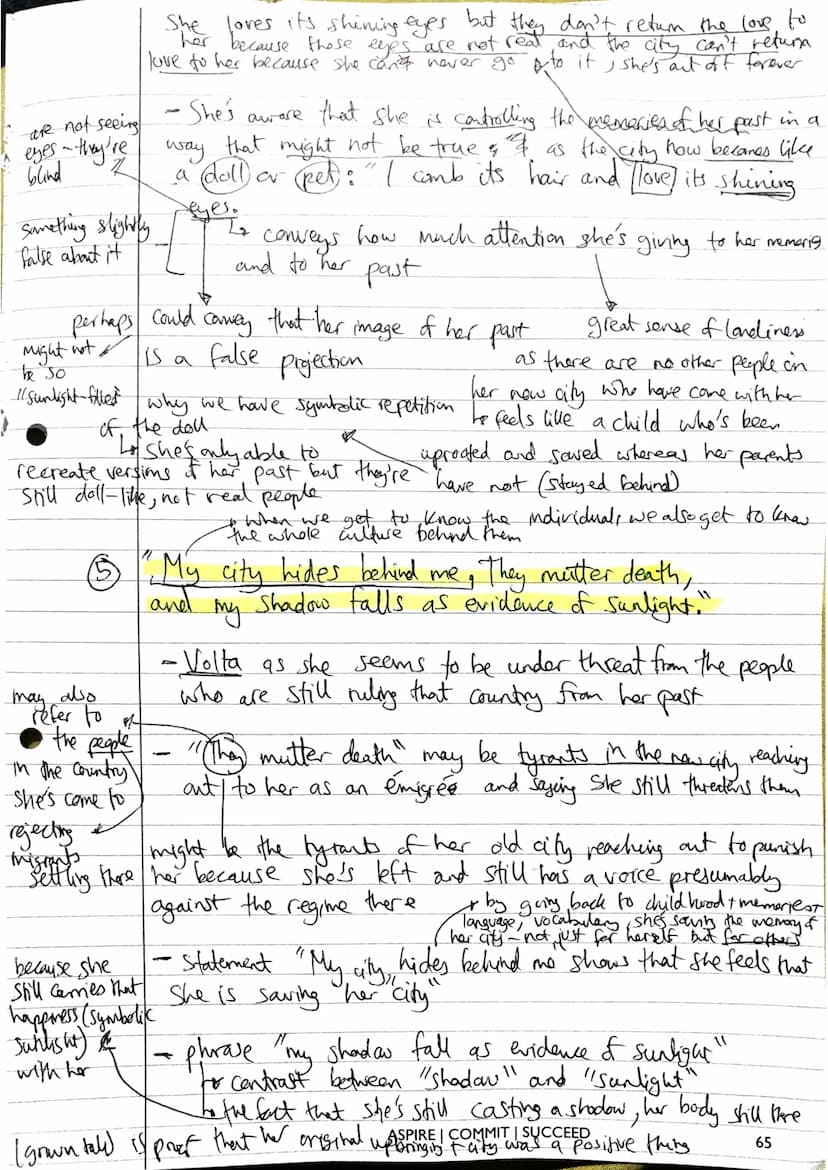 She loves its shining eyes but they don't return the love to
her because those eyes are not real and the city can't return
love to her because she can't never go to it, she's out of forever
- She's aware that she is controlling the memories of her past in a
way that might not be true & as the city now becomes like
a doll or pet: "I comb its hair and love its shining
eyes.
are not seeing
eyes - they're
blind
something slightly
false about it
↳ conveys how much attention she's giving to her memories
and to her past
could convey that her image of her past
is a false projection
perhaps
might not
be so
"sunlight-filled"
great sense of loneliness
as there are no other people in
her new city who have come with her
↳ feels like a child who's been
uprooted and saved whereas her parents
have not (stayed behind)
why we have symbolic repetition
of the doll
↳ she's only able to
recreate versions of her past but they're
still doll-like, not real people
when we get to know the individual, we also get to know
the whole culture behind them
5 "My city hides behind me, They mutter death,
and my shadow falls as evidence of sunlight."
- Volta as she seems to be under threat from the people
who are still ruling that country from her past
may also
refer to
the people
in the country
she's come to
rejecting
migrants
settling there
- "They mutter death" may be tyrants in the new city reaching
out to her as an émigrée and saying she still threatens them
might be the tyrants of her old city reaching out to punish
her because she's left and still has a voice presumably
against the regime there
by going back to childhood + memories +
language, vocabulary, she's saving the memory of
her city - not just for herself but for others
- Statement "My city hides behind me" shows that she feels that
she is saving "her city"
because she
still carries that
happiness (symbolic
sunlight)
with her
- phrase "my shadow fall as evidence of sunlight"
↳ contrast between "shadow" and "sunlight"
↳ the fact that she's still casting a shadow, her body still there
(grown tall) is proof that her original upbringing + city was a positive thing
ASPIRE | COMMIT | SUCCEED
65